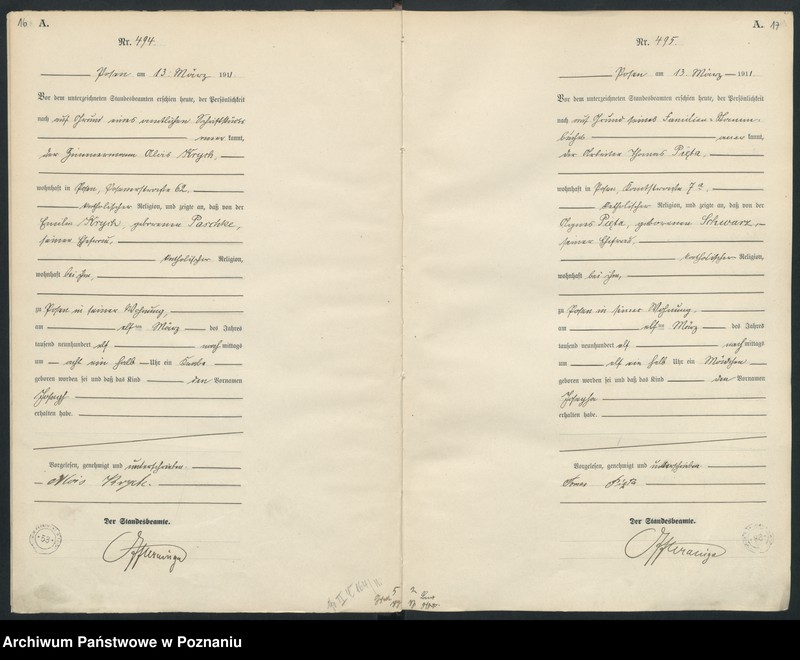 16 A.
Nr. 494
Posen am 13. März 1911
Vor dem unterzeichneten Standesbeamten erschien heute, der Persönlichkeit
nach auf Grund eines amtlichen Schriftstücks
anerkannt,
der Zimmermann Alois Krych,
wohnhaft in Posen, Posenerstraße 62
katholischer Religion, und zeigte an, daß von der
Emilie Krych, geborenen Paschke,
seiner Ehefrau,
katholischer Religion,
wohnhaft bei ihm,
zu Posen in seiner Wohnung,
am elften März des Jahres
tausend neunhundert elf nachmittags
um acht ein halb Uhr ein Knabe
geboren worden sei und daß das Kind den Vornamen
Joseph
erhalten habe.
Vorgelesen, genehmigt und unterschrieben
Alois Krych.
Der Standesbeamte.
A. 17
Nr. 495
Posen am 13. März 1911
Vor dem unterzeichneten Standesbeamten erschien heute, der Persönlichkeit
nach auf Grund seines Familien-Stamm-
buchs anerkannt,
der Arbeiter Thomas Pięta,
wohnhaft in Posen, 7a
katholischer Religion, und zeigte an, daß von der
Agnes Pięta, geborenen Schwarz,
seiner Ehefrau,
katholischer Religion,
wohnhaft bei ihm,
zu Posen in seiner Wohnung,
am elften März des Jahres
tausend neunhundert elf nachmittags
um elf ein halb Uhr ein Mädchen
geboren worden sei und daß das Kind den Vornamen
Josepha
erhalten habe.
Vorgelesen, genehmigt und unterschrieben
Tomas Pięta
Der Standesbeamte.
Archiwum Państwowe w Poznaniu